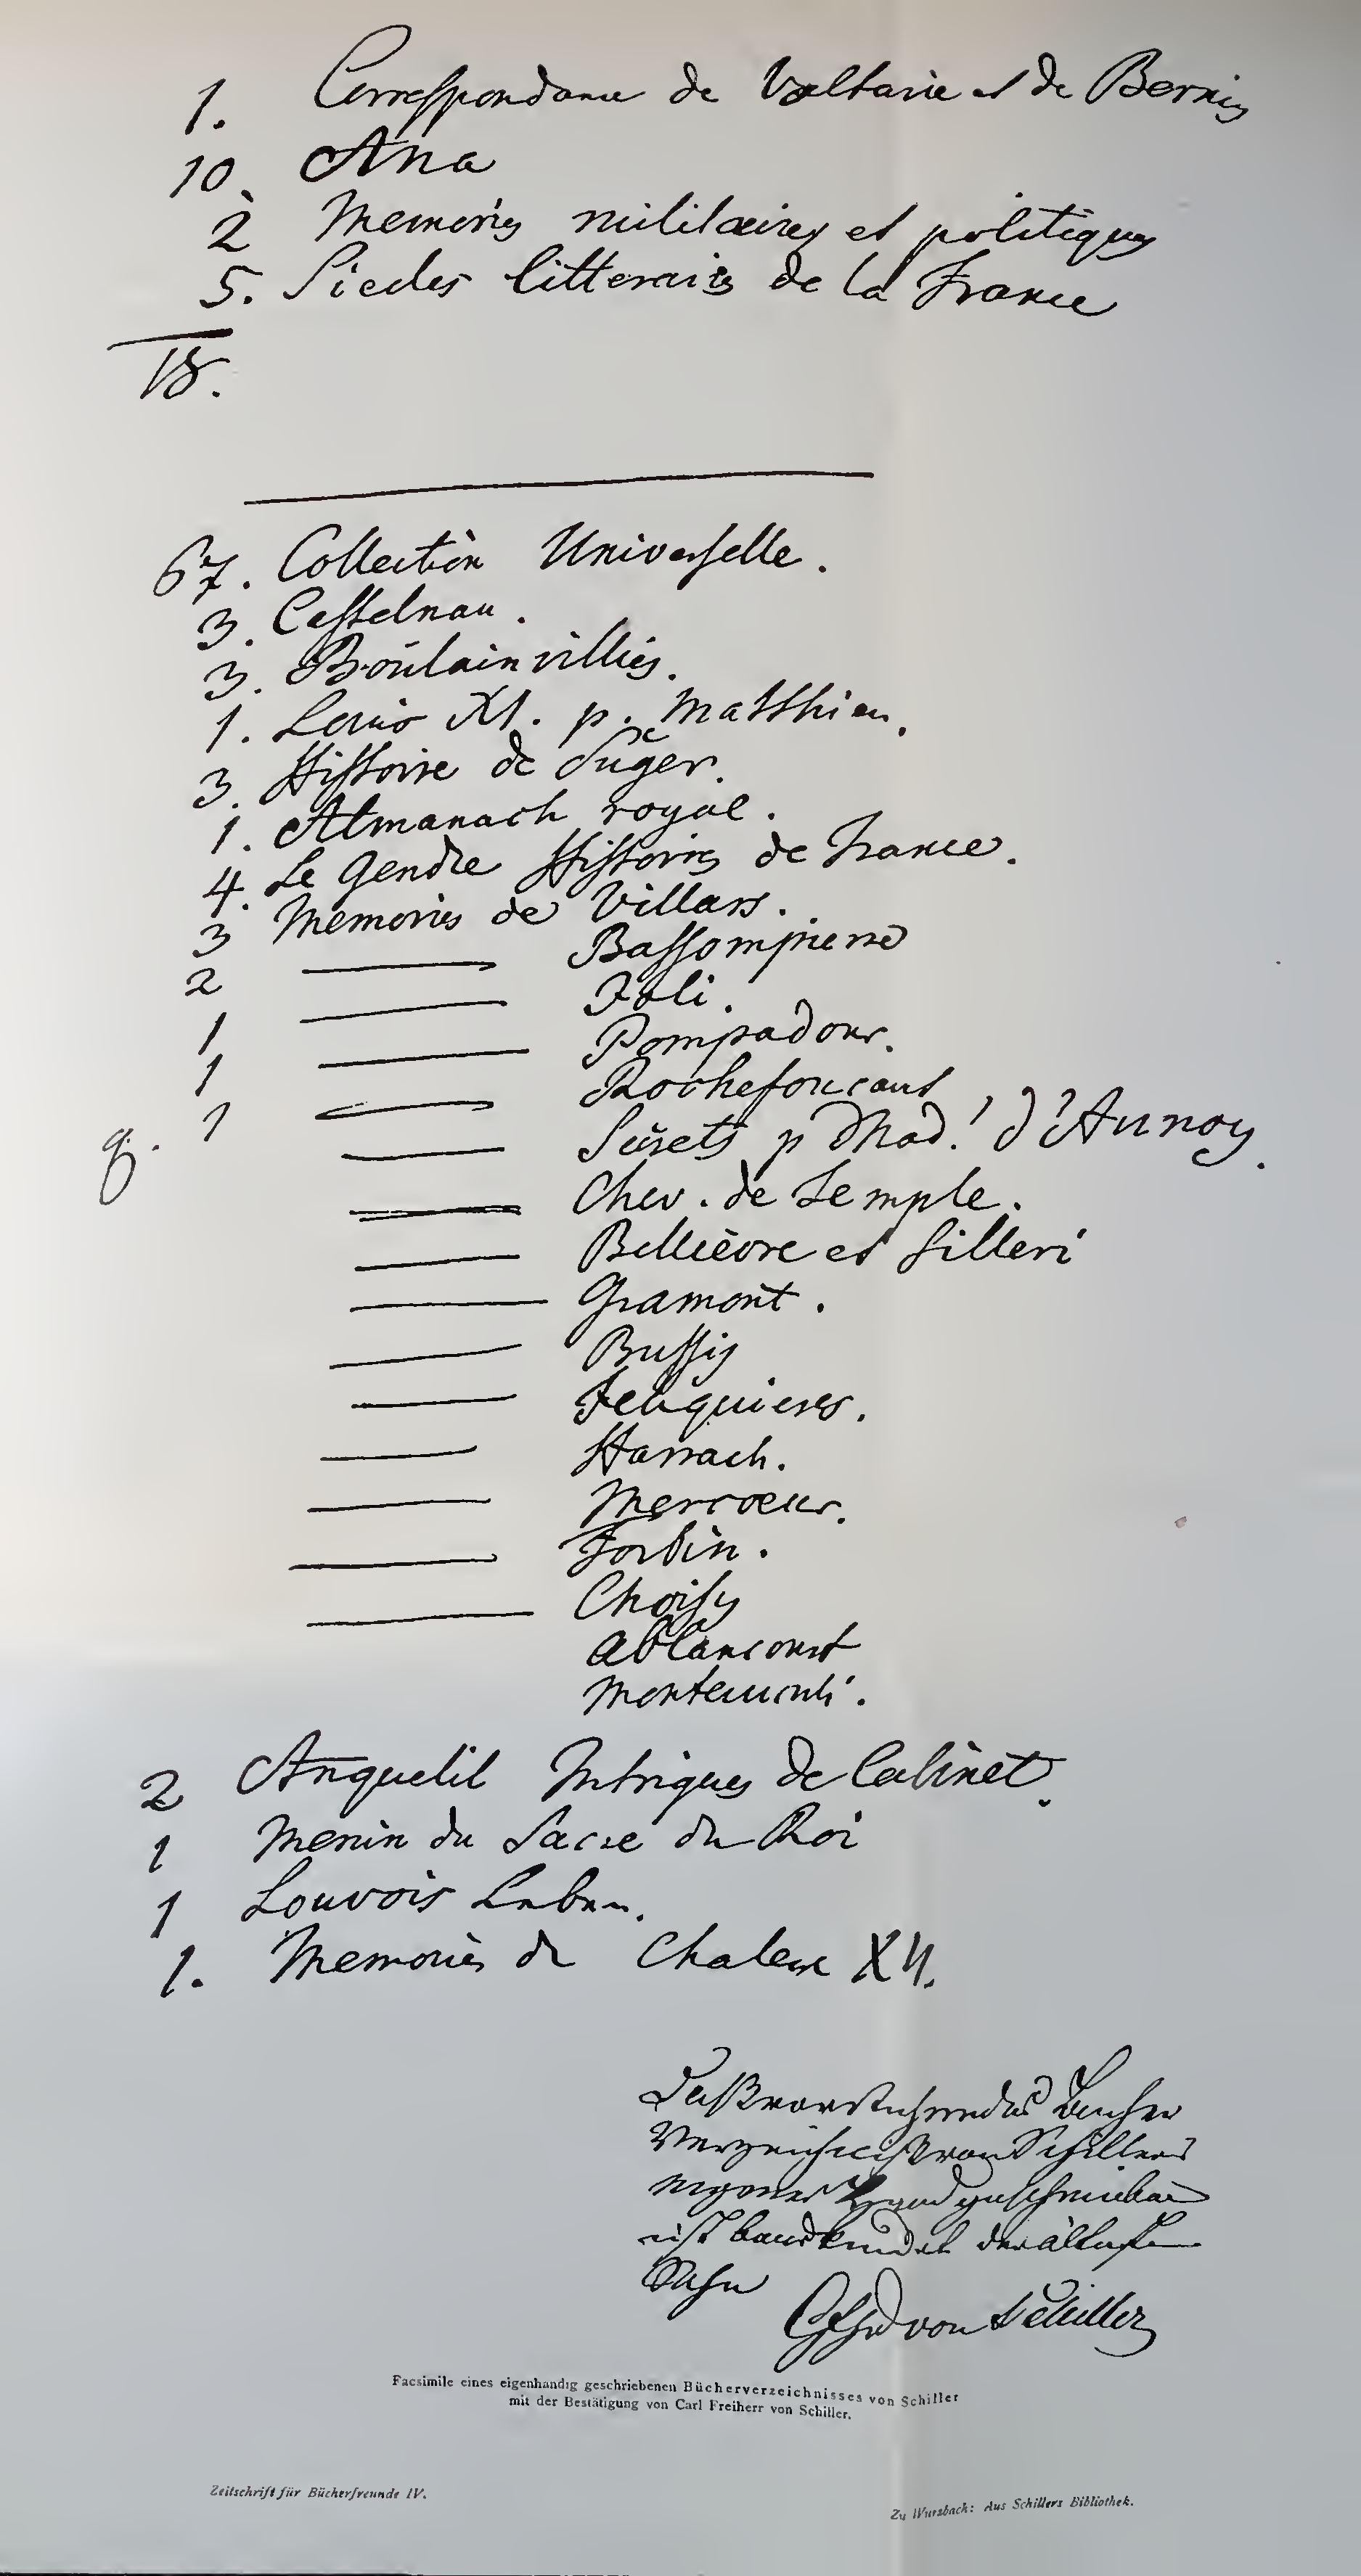 1. Correspondance de Voltaire et de Bernis
10. Ana
2 Memoires militaires et politiques
5. Siecles litteraires de la France
18.
67. Collection Universelle.
3. Castelnau.
3. Boulainvilliers.
1. Louis XI. p. Matthieu.
3. Histoire de Suger.
1. Almanach royal.
4. Le Gendre Histoire de France.
3 Memoires de Villars.
2 Bassompierre
1 Joli.
1 Pompadour.
1 Rochefoucaut
Secrets p Mad. d'Aunoy.
Chev. de Temple.
Bellièvre et Silleri
Gramont.
Bussy
Feuquieres.
Harrach.
Mercoeur.
Forbin.
Choisy
Ablancourt
Montecuculi.
2 Anquetil Intriques de Cabinet.
1 Menin du Sacre du Roi
1 Louvois Leben.
1. Memoires de Charles XII.
Daß vorstehendes Bücher
Verzeichniß von Schillers
eigener Hand geschrieben
ist beurkundet der älteste
Sohn
Cfhr von Schiller
Facsimile eines eigenhandig geschriebenen Bücherverzeichnisses von Schiller
mit der Bestätigung von Carl Freiherr von Schiller.
Zeitschrift für Bücherfreunde IV.
Zu Wurzbach: Aus Schillers Bibliothek.